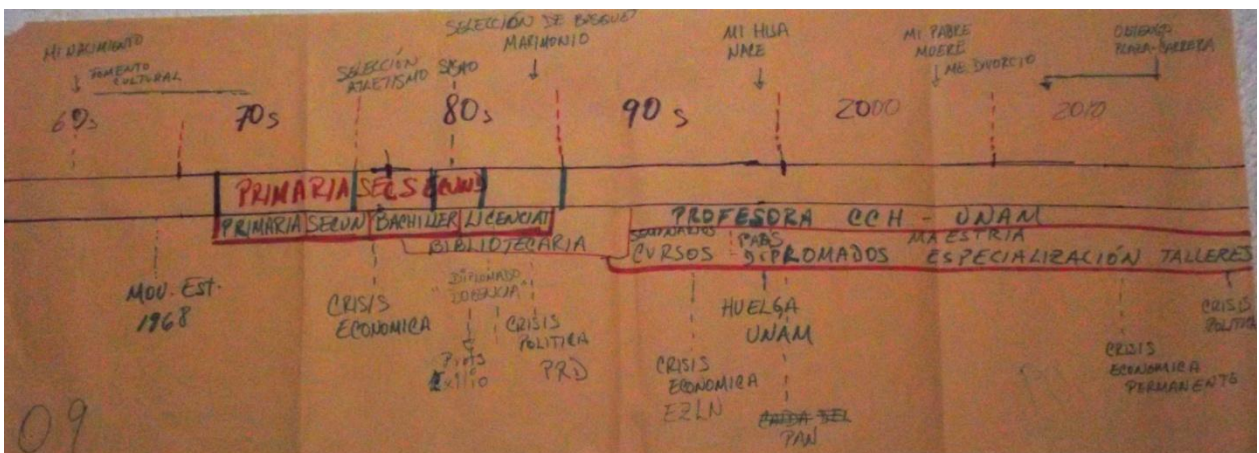 MI NACIMIENTO
FOMENTO
CULTURAL
SELECCIÓN
ATLETISMO
SELECCIÓN DE BASQUET
MATIMONIO
MI HIJA
NACE
MI PADRE
MUERE
ME DIVORCIO
OBTENGO
PLAZA-CARRERA
60s
70s
80s
90s
2000
2010
PRIMARIA SEC
PRIMARIA SECUN BACHILLER LICENCIAT
BIBLIOTECARIA
PROFESORA CCH - UNAM
SEMINARIOS
PAAS
MAESTRIA
CURSOS - DIPLOMADOS ESPECIALIZACIÓN TALLERES
MOV. EST.
1968
CRISIS
ECONOMICA
DIPLOMADO
"DOCENCIA"
Profs
Exilio
CRISIS
POLITICA
PRD
CRISIS
ECONOMICA
EZLN
HUELGA
UNAM
CAIDA DEL
PAN
CRISIS
ECONOMICA
PERMANENTE
CRISIS
POLITICA
09